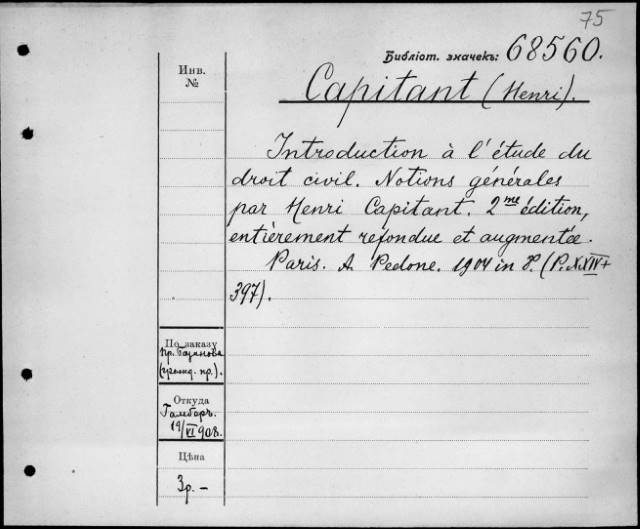 75
Библіот. значекъ: 68560.
Инв.
№
Capitant (Henri).
Introduction à l'étude du
droit civil. Notions générales
par Henri Capitant. 2me édition,
entièrement refondue et augmentée.
Paris. A. Pedone. 1904 in 8. (P. XXIV+
397).
По заказу
пр.
(гражд. пр.).
Откуда
19/VI 908.
Цѣна
3р.–